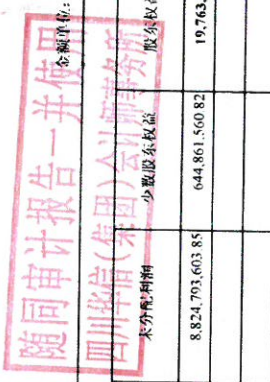 随同审计报告一并使用
四川华信(集团)会计师事务所
金额单位:
未分配利润 少数股东权益 股东权益
8,824,793,603.85 644,861,560.82 19,763,